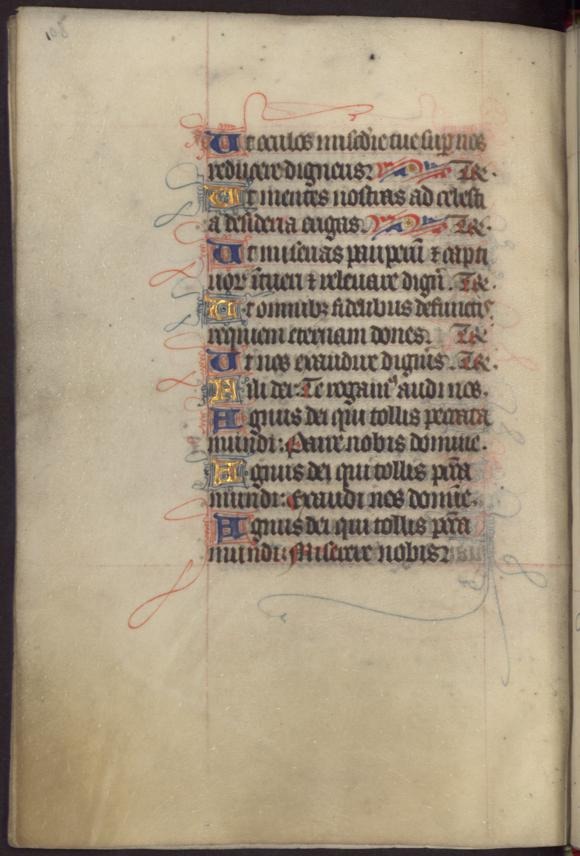 108
Ut oculos mis̄die tue sup̲ nos
reducere digneris. Te.
Ut mentes nostras ad celesti
a desideria erigas. Te.
Ut miserias pauperū ⁊ capti
uor̄ ītueri ⁊ releuare dign̄. Te.
Ut omnibꝫ fidelibus defunctis
requiem eternam dones. Te.
Ut nos exaudire digñis. Te.
Fili dei: Te rogamꝰ audi nos.
Agnus dei qui tollis peccata
mundi: Parce nobis domine.
Agnus dei qui tollis pc̄ca
mundi: Exaudi nos domīe.
Agnus dei qui tollis pc̄ca
mundi: Miserere nobis